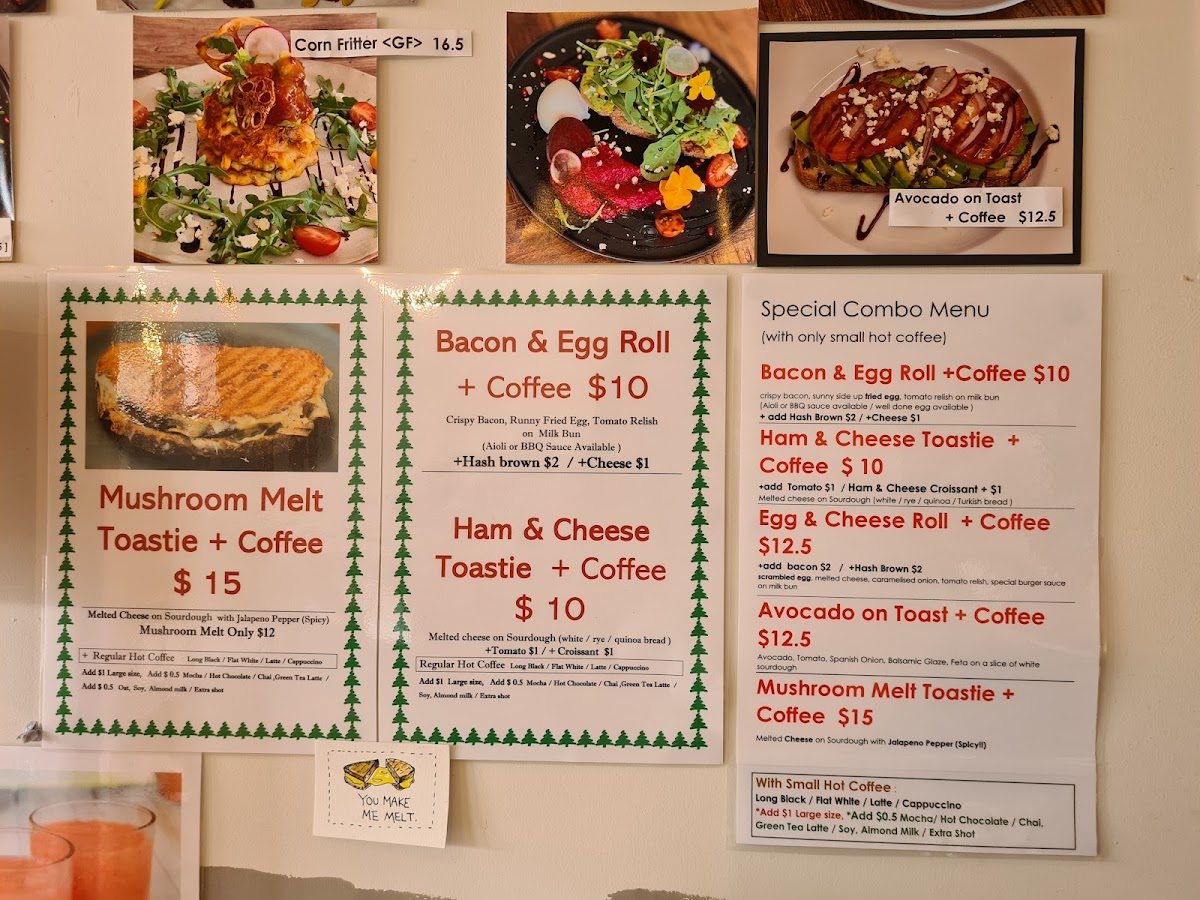 Corn Fritter <GF> 16.5
Avocado on Toast
+ Coffee $12.5
Mushroom Melt
Toastie + Coffee
$ 15
Melted Cheese on Sourdough with Jalapeno Pepper (Spicy)
Mushroom Melt Only $12
+ Regular Hot Coffee Long Black / Flat White / Latte / Cappuccino
Add $1 Large size, Add $ 0.5 Mocha / Hot Chocolate / Chai ,Green Tea Latte /
Add $ 0.5 Oat, Soy, Almond milk / Extra shot
Bacon & Egg Roll
+ Coffee $10
Crispy Bacon, Runny Fried Egg, Tomato Relish
on Milk Bun
(Aioli or BBQ Sauce Available )
+Hash brown $2 / +Cheese $1
Ham & Cheese
Toastie + Coffee
$ 10
Melted cheese on Sourdough (white / rye / quinoa bread )
+Tomato $1 / + Croissant $1
Regular Hot Coffee Long Black / Flat White / Latte / Cappuccino
Add $1 Large size, Add $ 0.5 Mocha / Hot Chocolate / Chai ,Green Tea Latte /
Soy, Almond milk / Extra shot
YOU MAKE
ME MELT.
Special Combo Menu
(with only small hot coffee)
Bacon & Egg Roll +Coffee $10
crispy bacon, sunny side up fried egg, tomato relish on milk bun
(Aioli or BBQ sauce available / well done egg available )
+ add Hash Brown $2 / +Cheese $1
Ham & Cheese Toastie +
Coffee $ 10
+add Tomato $1 / Ham & Cheese Croissant + $1
Melted cheese on Sourdough (white / rye / quinoa / Turkish bread )
Egg & Cheese Roll + Coffee
$12.5
+add bacon $2 / +Hash Brown $2
scrambled egg, melted cheese, caramelised onion, tomato relish, special burger sauce
on milk bun
Avocado on Toast + Coffee
$12.5
Avocado, Tomato, Spanish Onion, Balsamic Glaze, Feta on a slice of white
sourdough
Mushroom Melt Toastie +
Coffee $15
Melted Cheese on Sourdough with Jalapeno Pepper (Spicy!!)
With Small Hot Coffee :
Long Black / Flat White / Latte / Cappuccino
*Add $1 Large size, *Add $0.5 Mocha/ Hot Chocolate / Chai,
Green Tea Latte / Soy, Almond Milk / Extra Shot